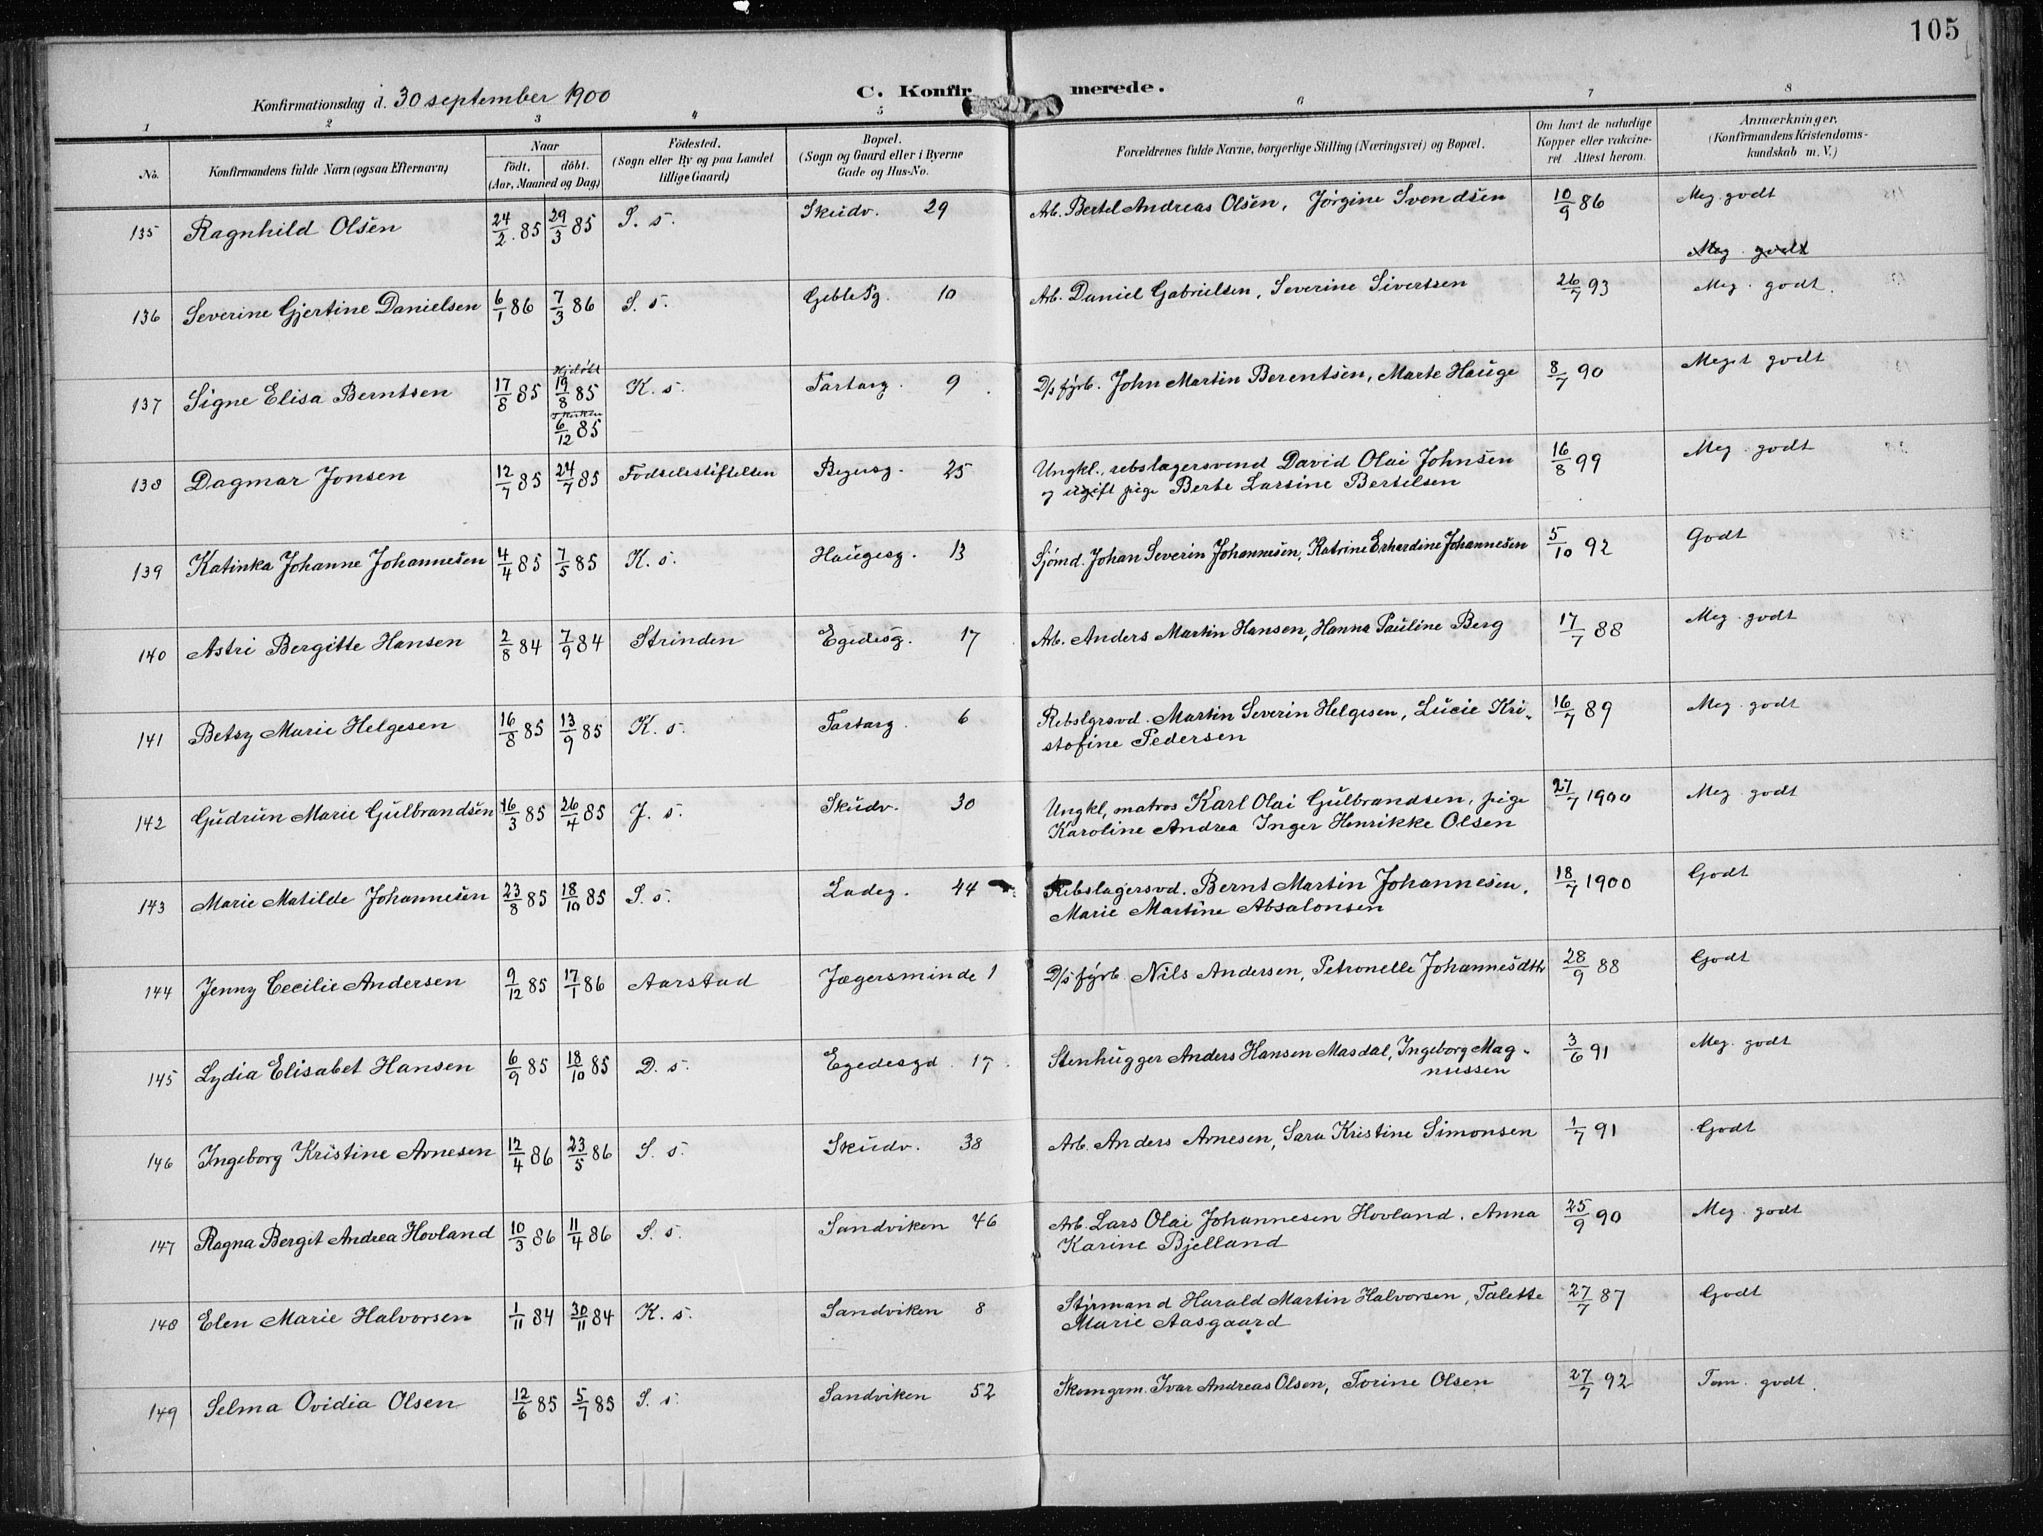 105
Konfirmationsdag d. 30 september 1900 C. Konfirmerede.
1 2 3 4 5 6 7 8
No. Konfirmandens fulde Navn (ogsaa Efternavn) Naar født. døbt. (Aar, Maaned og Dag) Fødested. (Sogn eller By og paa Landet tillige Gaard) Bopæl. (Sogn og Gaard eller i Byerne Gade og Hus-No. Forældrenes fulde Navne, borgerlige Stilling (Næringsvei) og Bopæl. Om havt de naturlige Kopper eller vakcineret. Attest herom. Anmærkninger. (Konfirmandens Kristendomskundskab m. V.)
135 Ragnhild Olsen 24/2 85 29/3 85 S. s. Skudv. 29 Arb. Bertel Andreas Olsen, Jørgine Svendsen 10/9 86 Meg. godt
Meg. godt
136 Severine Gjertine Danielsen 6/1 86 7/3 86 S. s. Geble Pg. 10 Arb. Daniel Gabrielsen, Severine Sivertsen 26/7 93 Meg. godt.
137 Signe Elisa Berntsen 17/8 85 Hjdøbt 19/8 85 I kirken 6/12 85 K. s. Tartarg. 9 D/s fyrb. John Martin Berentsen, Marte Hauge 8/7 90 Meget godt
138 Dagmar Jonsen 12/7 85 24/7 85 Fødselsstiftelsen Bøgersg. 25 Ungkl., rebslagersvend David Olai Johnsen
og ugift pige Berte Larsine Bertilsen 16/8 99 Meg. godt
139 Katinka Johanne Johannesen 4/4 85 7/5 85 K. s. Haugesg. 13 Sjømd. Johan Severin Johannesen, Katrine Erhardine Johannesen 5/10 92 Godt
140 Astri Bergitte Hansen 2/8 84 7/9 84 Strinden Egedesg. 17 Arb. Anders Martin Hansen, Hanna Pauline Berg 17/7 88 Meg. godt
141 Betsy Marie Helgesen 16/8 85 13/9 85 K. s. Tartarg. 6 Rebslgrsvd. Martin Severin Helgesen, Lucie Kri-
stofine Pedersen 16/7 89 Meg. godt
142 Gudrun Marie Gulbrandsen 16/3 85 26/4 85 J. s. Skudv. 30 Ungkl, matros Karl Olai Gulbrandsen, pige
Karoline Andrea Inger Henrikke Olsen 27/7 1900 Meg. godt
143 Marie Matilde Johannesen 23/8 85 18/10 85 S. s. Ladeg. 44 Rebslagersvd. Bernt Martin Johannesen,
Marie Martine Absalonsen 18/7 1900 Godt
144 Jenny Cecilie Andersen 9/12 85 17/1 86 Aarstad Jægersminde 1 D/s fyrb. Nils Andersen, Petronelle Johannesdttr 28/9 88 Godt
145 Lydia Elisabet Hansen 6/9 85 18/10 85 D. s. Egedesgd. 17. Stenhugger Anders Hansen Masdal, Ingeborg Mag-
nussen 3/6 91 Meg. godt
146 Ingeborg Kristine Arnesen 12/4 86 23/5 86 S. s. Skudv. 38 Arb. Anders Arnesen, Sara Kristine Simonsen 1/7 91 Godt
147 Ragna Bergit Andrea Hovland 10/3 86 11/4 86 S. s. Sandviken 46 Arb. Lars Olai Johannesen Hovland. Anna
Karine Bjelland 25/9 90 Meg. godt
148 Elen Marie Halvorsen 1/11 84 30/11 84 K. s. Sandviken 8 Styrmand Harald Martin Halvorsen, Talette
Marie Aasgaard 27/7 87 Godt
149 Selma Ovidia Olsen 12/6 85 5/7 85 S. s. Sandviken 52 Skomgrm. Ivar Andreas Olsen, Torine Olsen 27/7 92 Tem. godt.